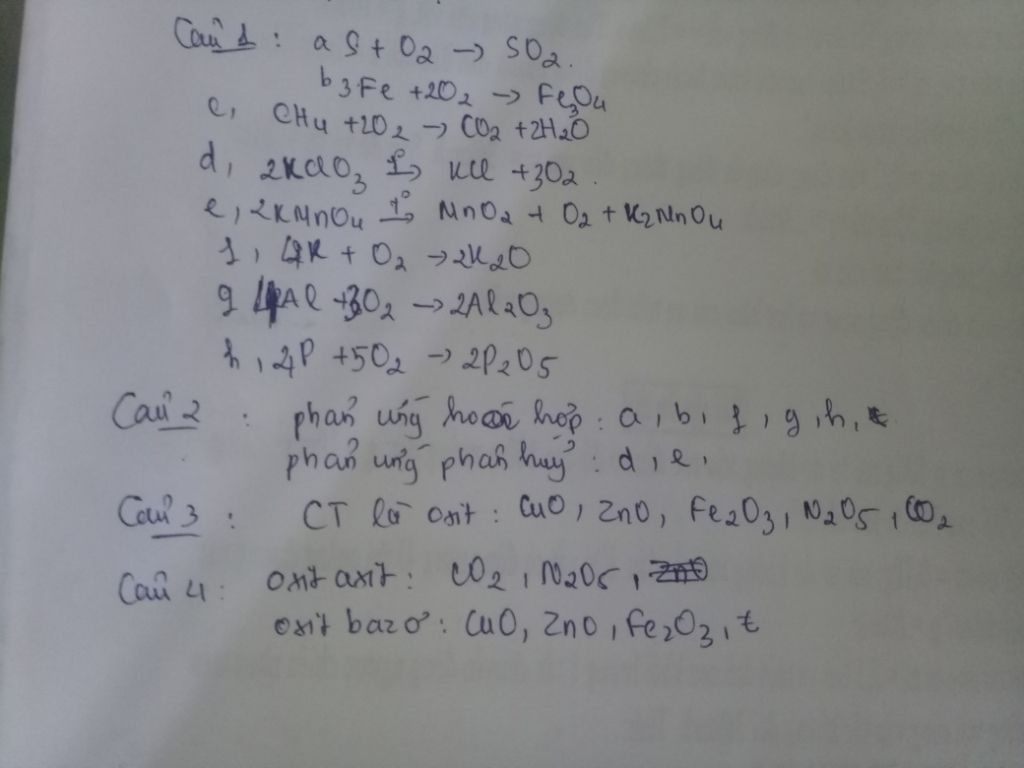 Câu 1 : a S + O2 → SO2.
b 3Fe + 2O2 → Fe3O4
c, CH4 + 2O2 → CO2 + 2H2O
d, 2KClO3 t°→ KCl + 3O2.
e, 2KMnO4 t°→ MnO2 + O2 + K2MnO4
f, 4K + O2 → 2K2O
g 4Al + 3O2 → 2Al2O3
h, 4P + 5O2 → 2P2O5
Câu 2 : phản ứng hoá hợp : a, b, f, g, h,
phản ứng phân huỷ : d, e,
Câu 3 : CT là oxit : CuO, ZnO, Fe2O3, N2O5, CO2
Câu 4 : oxit axit : CO2, N2O5,
oxit bazơ : CuO, ZnO, Fe2O3, t